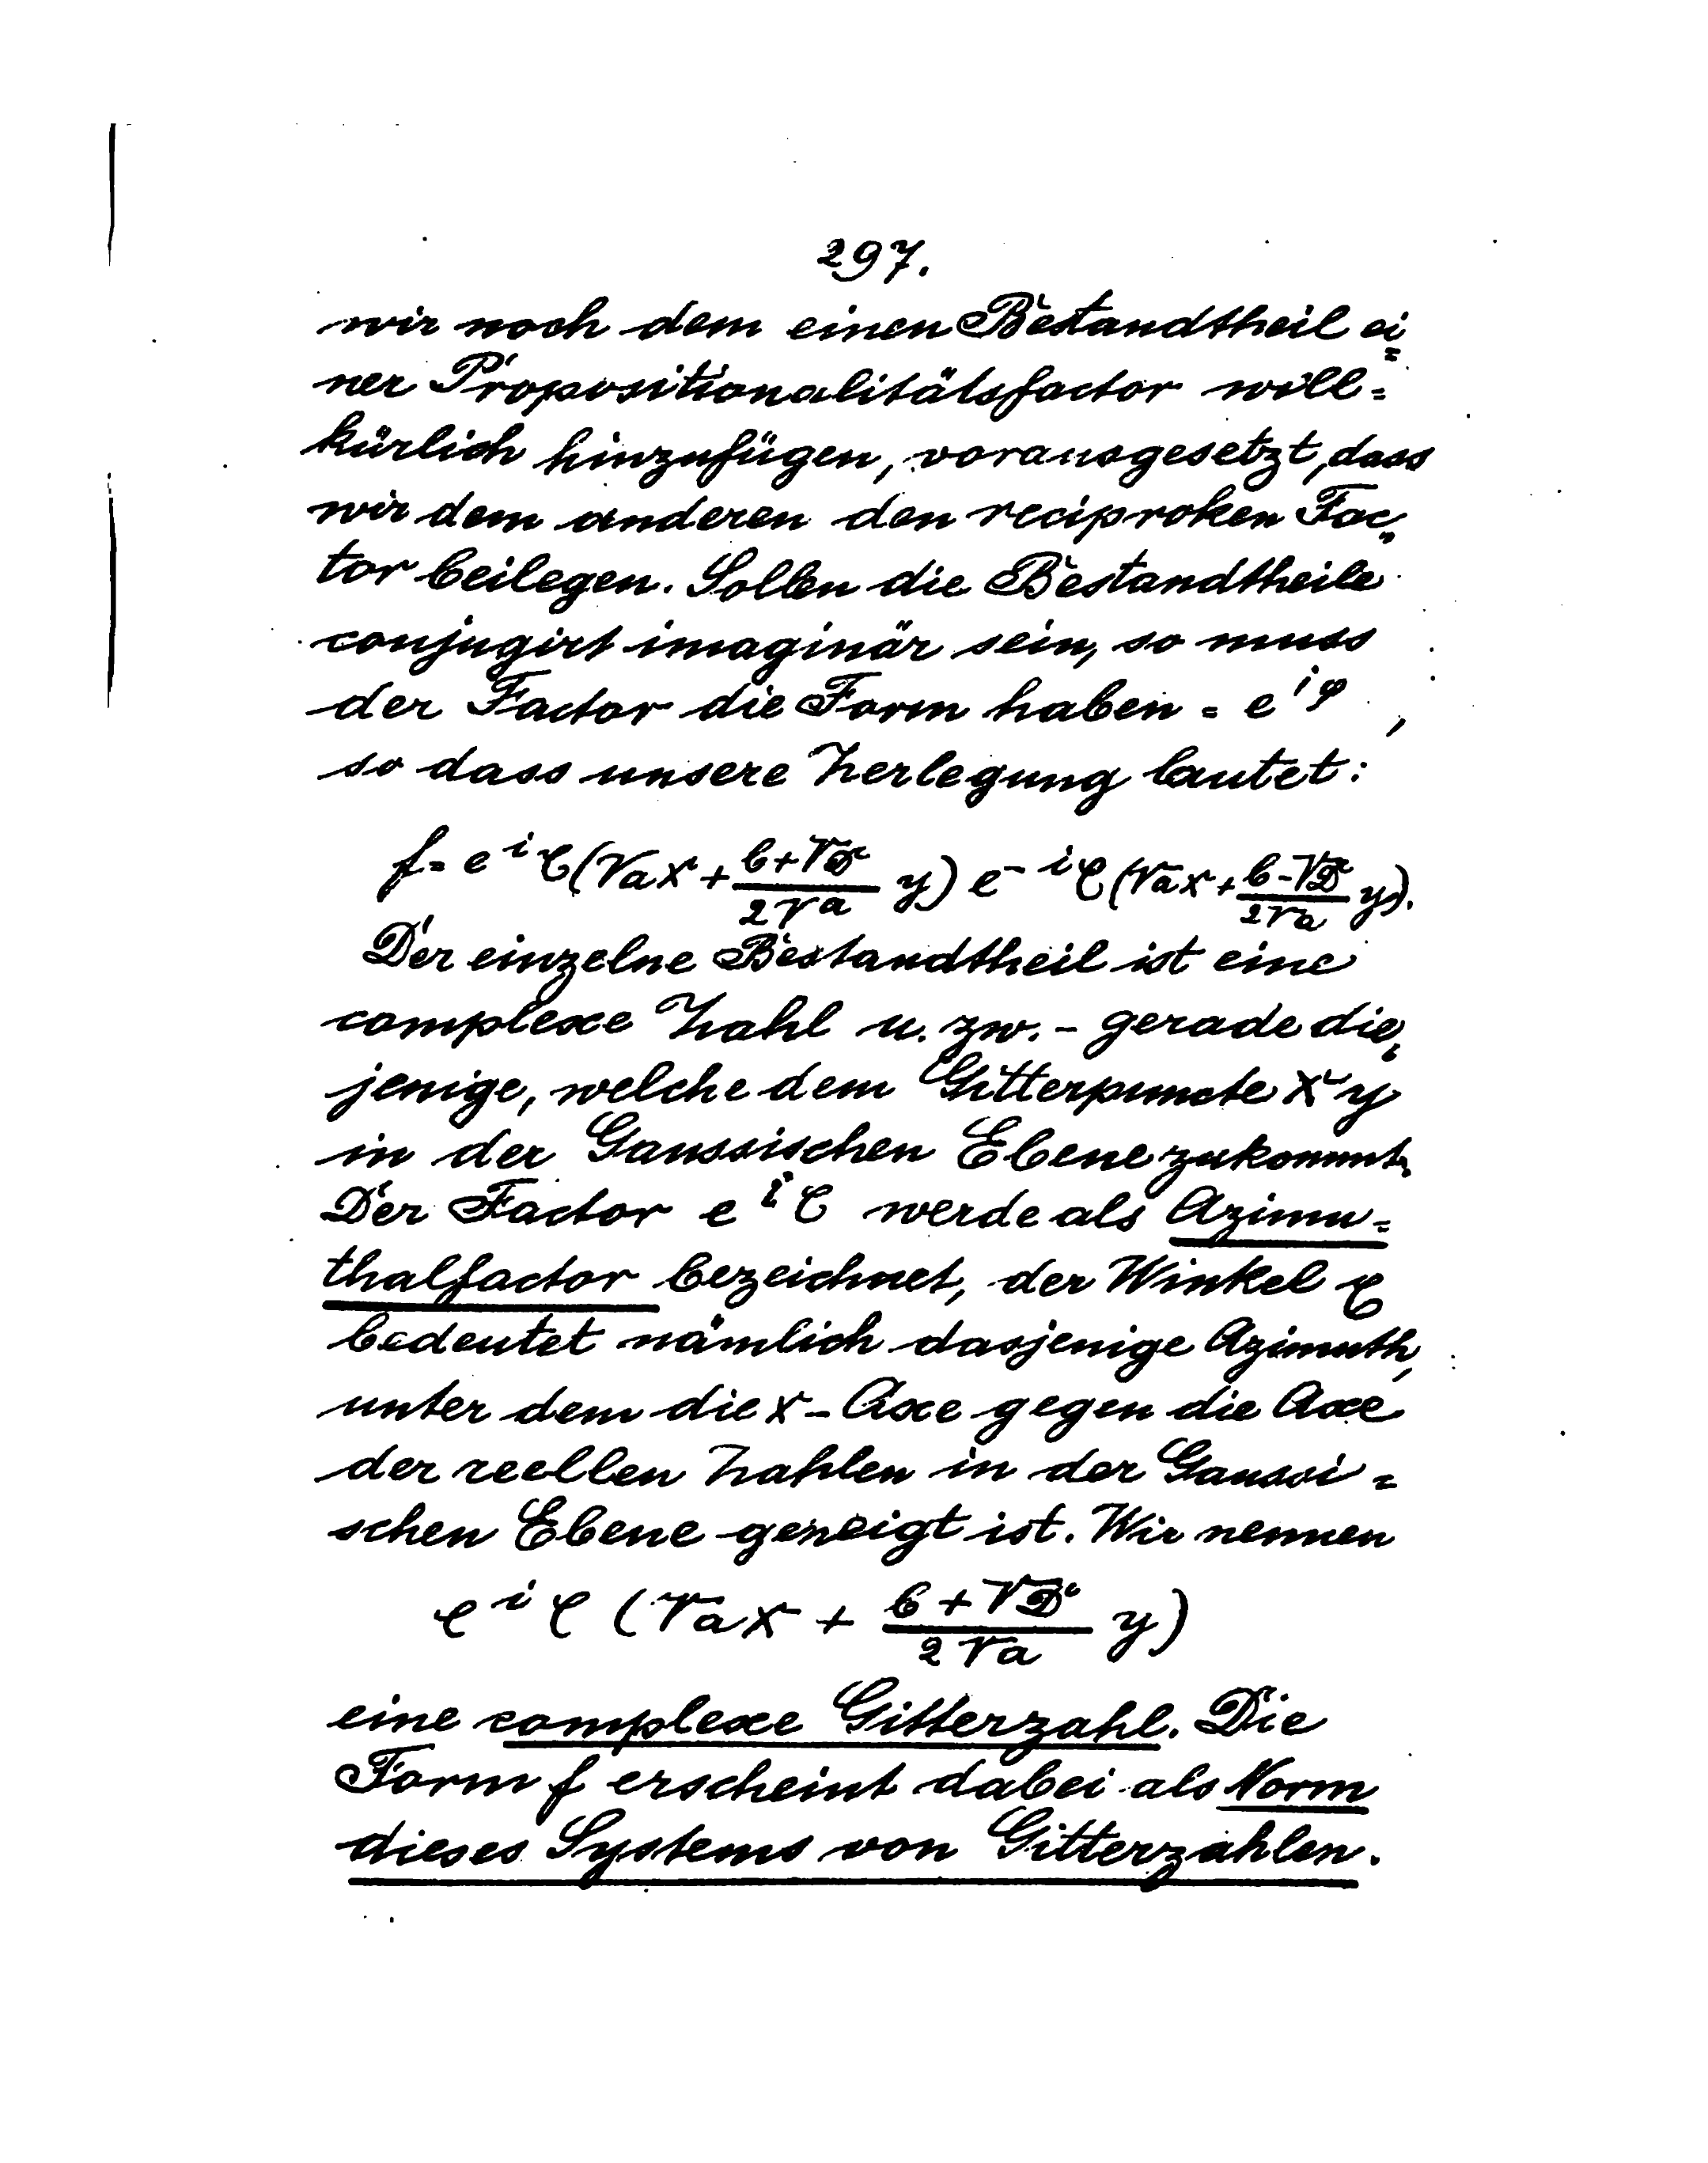 297.
wir noch dem einen Bestandtheil ei=
ner Propositionalitätsfactor will=
kürlich hinzufügen, vorausgesetzt, dass
wir dem anderen den reciproken Fac=
tor beilegen. Sollen die Bestandtheile
conjugirt imaginär sein, so muss
der Factor die Form haben = e^{iφ},
so dass unsere Zerlegung lautet:
f = e^{i}τ(√a x + \frac{b+√D}{2√a} y) e^{-i}τ(√a x + \frac{b-√D}{2√a} y).
Der einzelne Bestandtheil ist eine
complexe Zahl u. zw. - gerade die=
jenige, welche dem Gitterpuncte x y
in der Gaussischen Ebene zukommt.
Der Factor e^{i}τ werde als Azimu=
thalfactor bezeichnet, der Winkel τ
bedeutet nämlich dasjenige Azimuth,
unter dem die x - Axe gegen die Axe
der reellen Zahlen in der Gaussi=
schen Ebene geneigt ist. Wir nennen
e^{i}τ (√a x + \frac{b+√D}{2√a} y)
eine complexe Gitterzahl. Die
Form f erscheint dabei als Norm
dieses Systems von Gitterzahlen.